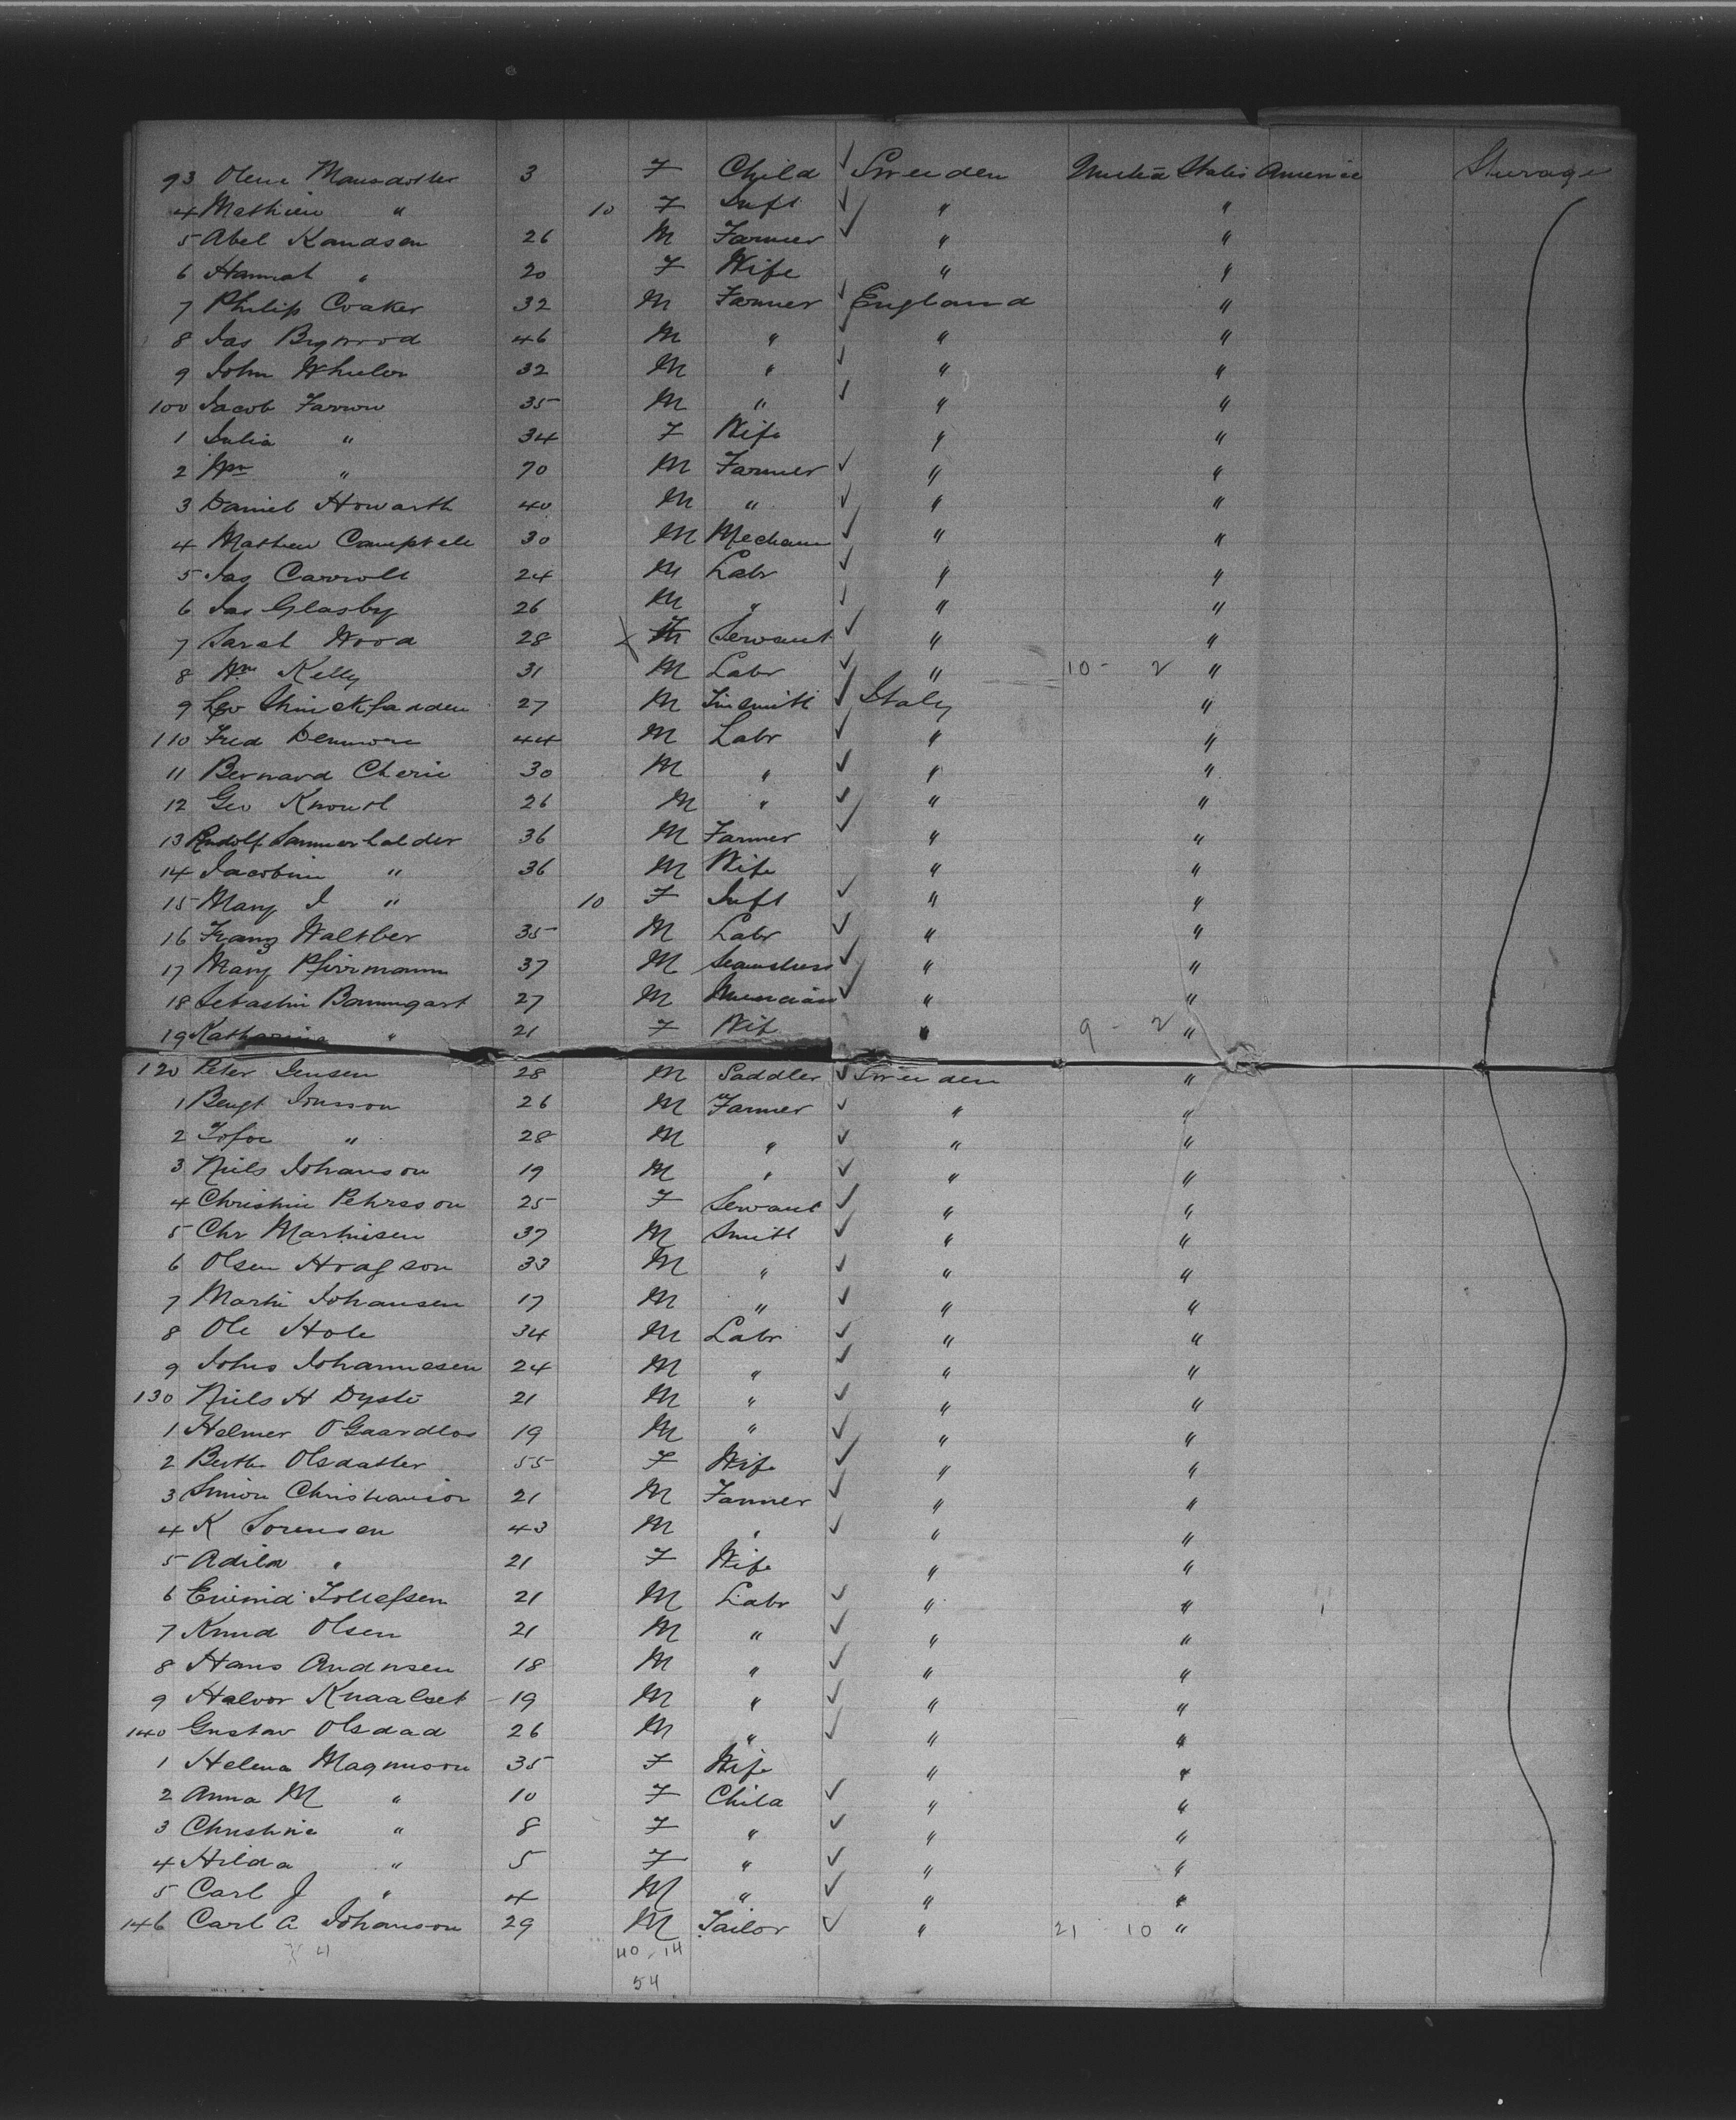 93 Olene Mansdotter 3 F Child ✓ Sweeden United States America Sturage
4 Mathien " 10 F Inft ✓ " "
5 Abel Kandsen 26 M Farmer ✓ " "
6 Hannah " 20 F Wife " "
7 Philip Coaker 32 M Farmer ✓ England "
8 Jas Bigwood 46 M " ✓ " "
9 John Wheeler 32 M " ✓ " "
100 Jacob Farrow 35 M " ✓ " "
1 Julia " 34 F Wife " "
2 Wm " 70 M Farmer ✓ " "
3 Daniel Howarth 40 M " ✓ " "
4 Mathew Camptell 30 M Mechan ✓ " "
5 Jas Carroll 24 M Labr ✓ " "
6 Jas Glasby 26 M " ✓ " "
7 Sarah Wood 28 X F Servant ✓ " "
8 Wm Kelly 31 M Labr ✓ " 10 - 2 "
9 Leo 27 M Tinsmith ✓ Italy "
110 Fred Denmore 44 M Labr ✓ " "
11 Bernard Cherie 30 M " ✓ " "
12 Geo Knouth 26 M " ✓ " "
13 Rudolf Sammerhalder 36 M Farmer ✓ " "
14 Jacobine " 36 M Wife " "
15 Mary J " 10 F Inft ✓ " "
16 Franz Walther 35 M Labr ✓ " "
17 Mary Pfirrmann 37 M Seamstress ✓ " "
18 Sebastin Baumgart 27 M Musician ✓ " "
19 Katharina " 21 F Wife " 9 - 2 "
120 Peter Jensen 28 M Saddler ✓ Sweeden "
1 Bengt Jonsson 26 M Farmer ✓ " "
2 " 28 M " ✓ " "
3 Niels Johanson 19 M " ✓ " "
4 Christine Pehrsson 25 F Servant ✓ " "
5 Chr Martinsen 37 M Smith ✓ " "
6 Olsen Hragson 33 M " ✓ " "
7 Martin Johansen 17 M " ✓ " "
8 Ole Hole 34 M Labr ✓ " "
9 Johs Johannesen 24 M " ✓ " "
130 Niels H Dyste 21 M " ✓ " "
1 Helmer O Gaardlos 19 M " ✓ " "
2 Berthe Olsdatter 55 F Wife ✓ " "
3 Simon Christiansor 21 M Farmer ✓ " "
4 K Sorensen 43 M " ✓ " "
5 Adila " 21 F Wife " "
6 Eivind Tollefsen 21 M Labr ✓ " "
7 Knud Olsen 21 M " ✓ " "
8 Hans Andrsen 18 M " ✓ " "
9 Halvor Knaalset 19 M " ✓ " "
140 Gustav Olsdad 26 M " ✓ " "
1 Helena Magnuson 35 F Wife " "
2 Anna M " 10 F Child ✓ " "
3 Christine " 8 F " ✓ " "
4 Hilda " 5 F " ✓ " "
5 Carl J " 4 M " ✓ " "
146 Carl A Johanson 29 M Tailor ✓ " 21 10 "
40 . 14
54